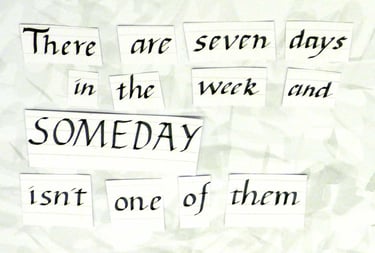 There are seven days
in the week and
SOMEDAY
isn't one of them